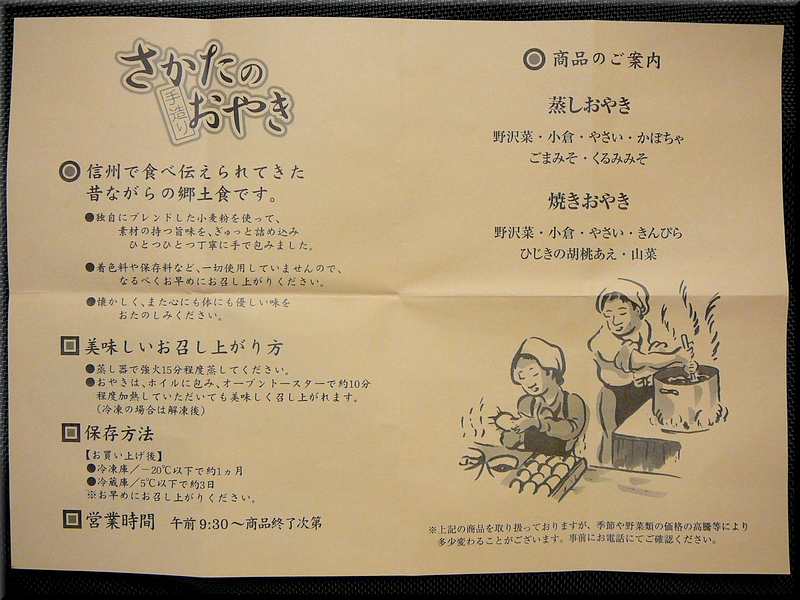 さかたの
手造り
おやき
信州で食べ伝えられてきた
昔ながらの郷土食です。
●独自にブレンドした小麦粉を使って、
素材の持つ旨味を、ぎゅっと詰め込み
ひとつひとつ丁寧に手で包みました。
●着色料や保存料など、一切使用していませんので、
なるべくお早めにお召し上がりください。
●懐かしく、また心にも体にも優しい味を
おたのしみください。
美味しいお召し上がり方
●蒸し器で強火15分程度蒸してください。
●おやきは、ホイルに包み、オーブントースターで約10分
程度加熱していただいても美味しく召し上がれます。
（冷凍の場合は解凍後）
保存方法
【お買い上げ後】
●冷凍庫／－20℃以下で約1ヵ月
●冷蔵庫／5℃以下で約3日
※お早めにお召し上がりください。
営業時間 午前9:30～商品終了次第
商品のご案内
蒸しおやき
野沢菜・小倉・やさい・かぼちゃ
ごまみそ・くるみみそ
焼きおやき
野沢菜・小倉・やさい・きんぴら
ひじきの胡桃あえ・山菜
※上記の商品を取り扱っておりますが、季節や野菜類の価格の高騰等により
多少変わることがございます。事前にお電話にてご確認ください。